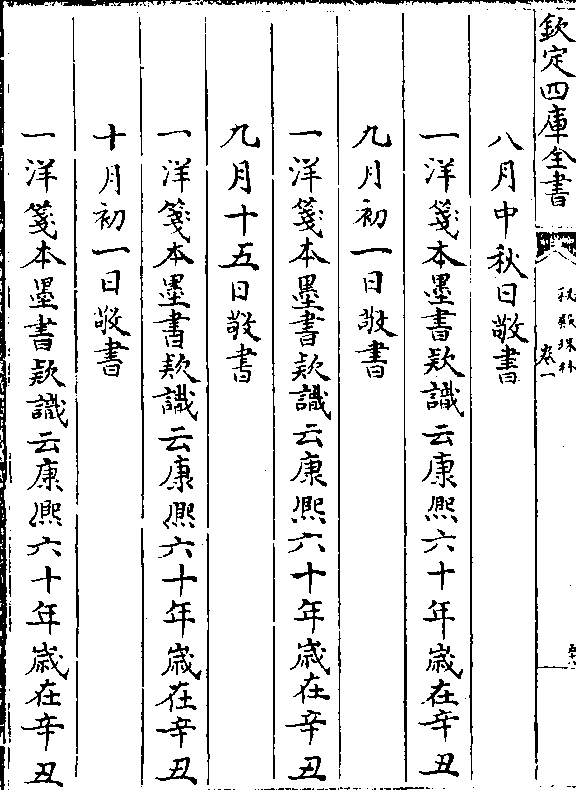 欽定四庫全書
秘殿珠林
卷一
八月中秋日敬書
一洋箋本墨書款識云康熙六十年歲在辛丑
九月初一日敬書
一洋箋本墨書款識云康熙六十年歲在辛丑
九月十五日敬書
一洋箋本墨書款識云康熙六十年歲在辛丑
十月初一日敬書
一洋箋本墨書款識云康熙六十年歲在辛丑